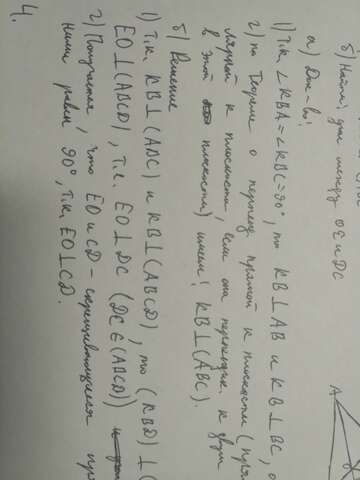 б) Найти: угол между OE и DC
а) Док-во:
1) Т.к. ∠KBA = ∠KBC = 90°, то KB⊥AB и KB⊥BC,
2) по Теореме о перпенд. прямой к плоскости (прям
к плоскости, если она перпендик. к двум
в этой плоскости) имеем: KB⊥(ABC).
б) Решение
1) Т.к. KB⊥(ABC) и KB⊥(ABCD), то (KBD)⊥(
EO⊥(ABCD), т.е. EO⊥DC (DC∈(ABCD))
2) Получается, что EO и CD - скрещивающиеся пря
ними равен 90°, т.к. EO⊥CD.
4.
A